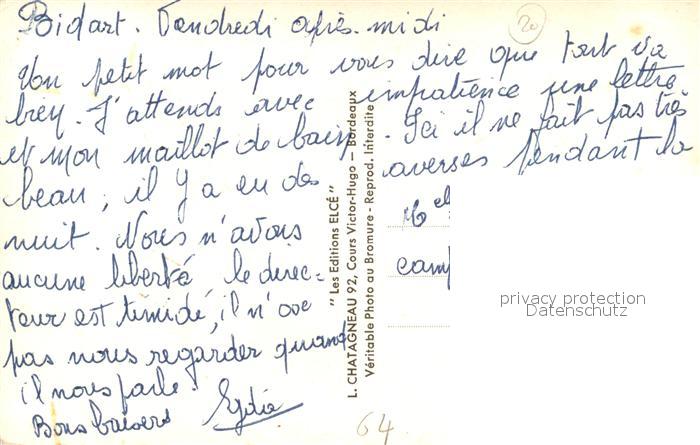 Bidart. Vendredi après-midi
20
Un petit mot pour vous dire que tout va
bien. J'attends avec impatience une lettre
et mon maillot de bain. Ici il ne fait pas très
beau, il y a eu des averses pendant la
nuit. Nous n'avons
aucune liberté, le direc-
teur est timide, il n'ose
pas nous regarder quand
il nous parle.
Bons baisers
" Les Editions ELCÉ "
L. CHATAGNEAU 92, Cours Victor-Hugo — Bordeaux
Véritable Photo au Bromure - Reprod. Interdite
camp
privacy protection
Datenschutz
64